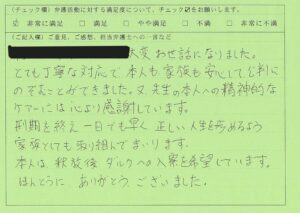 弁護活動に対する満足度について、チェック☑をお願いします。
☑ 非常に満足 □ 満足 □ やや満足 □ 不満 □ 非常に不満
(ご記入欄) ご意見、ご感想、担当弁護士への一言など
大変お世話になりました。
とても丁寧な対応で、本人も家族も安心して裁判に
のぞむことができました。又、先生の本人への精神的な
ケアーには心より感謝しています。
刑期を終え一日でも早く正しい人生を歩めるよう
家族としても取り組んでまいります。
本人は釈放後ダルクへの入寮を希望しています。
ほんとうに、ありがとうございました。